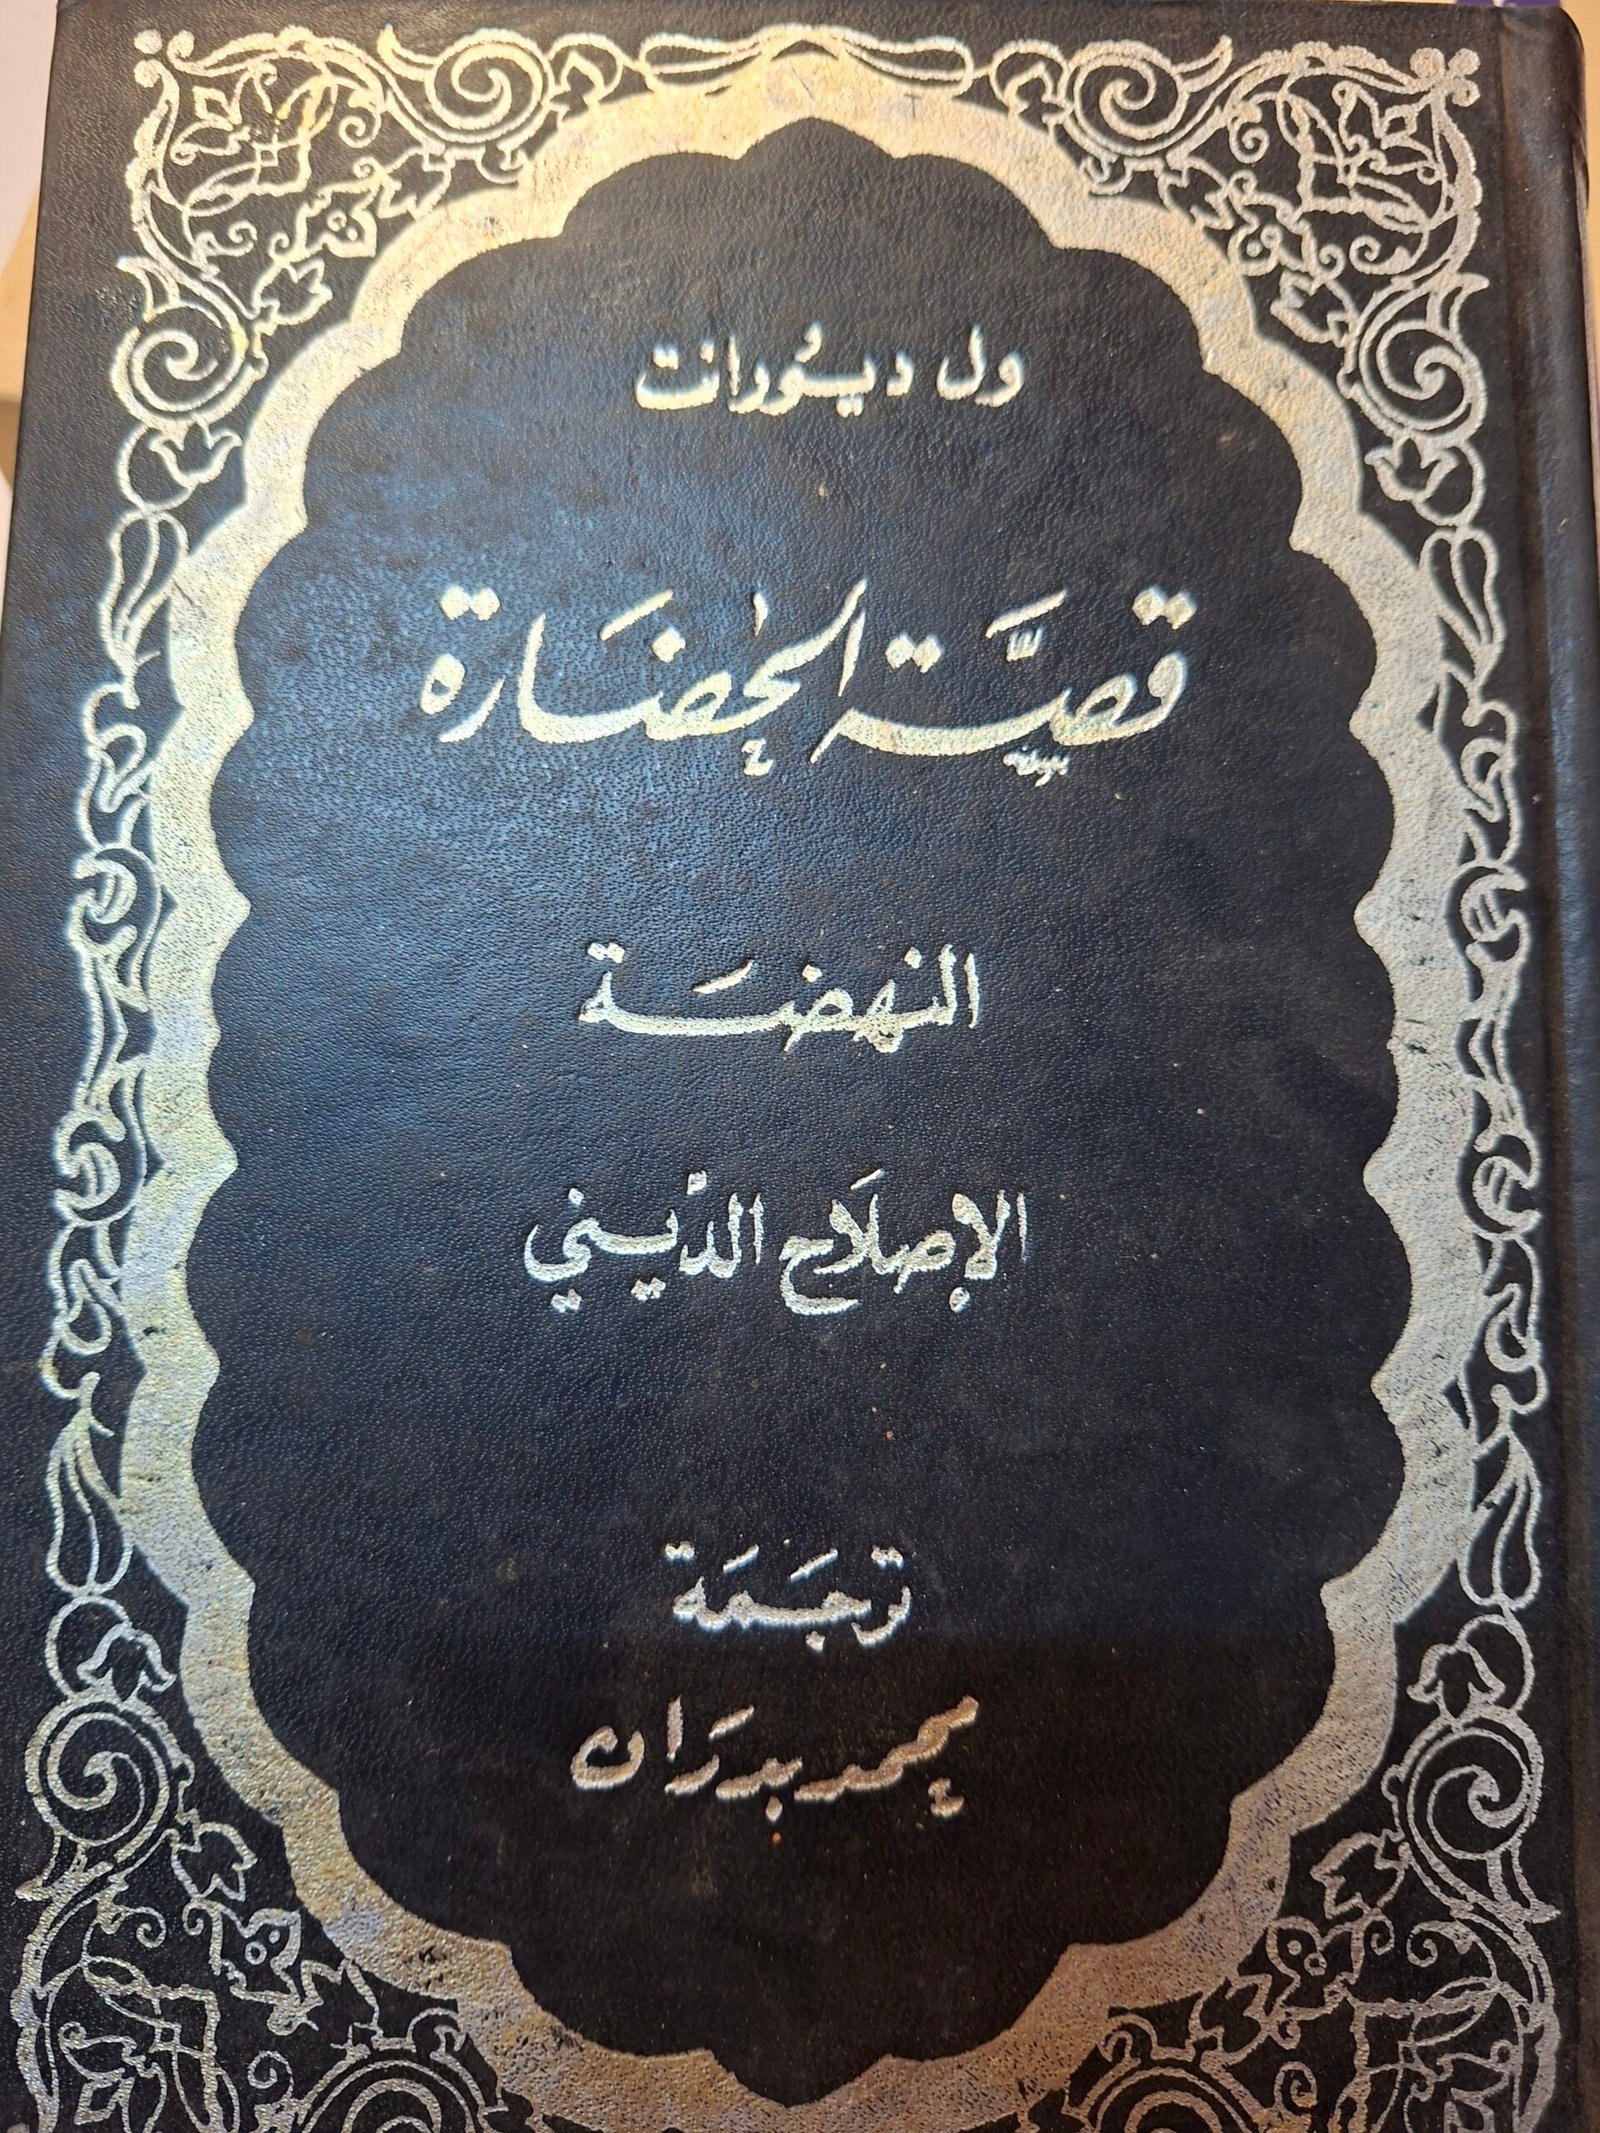 ول ديورانت
قصة الحضارة
النهضة
الإصلاح الديني
ترجمة
محمد بدران